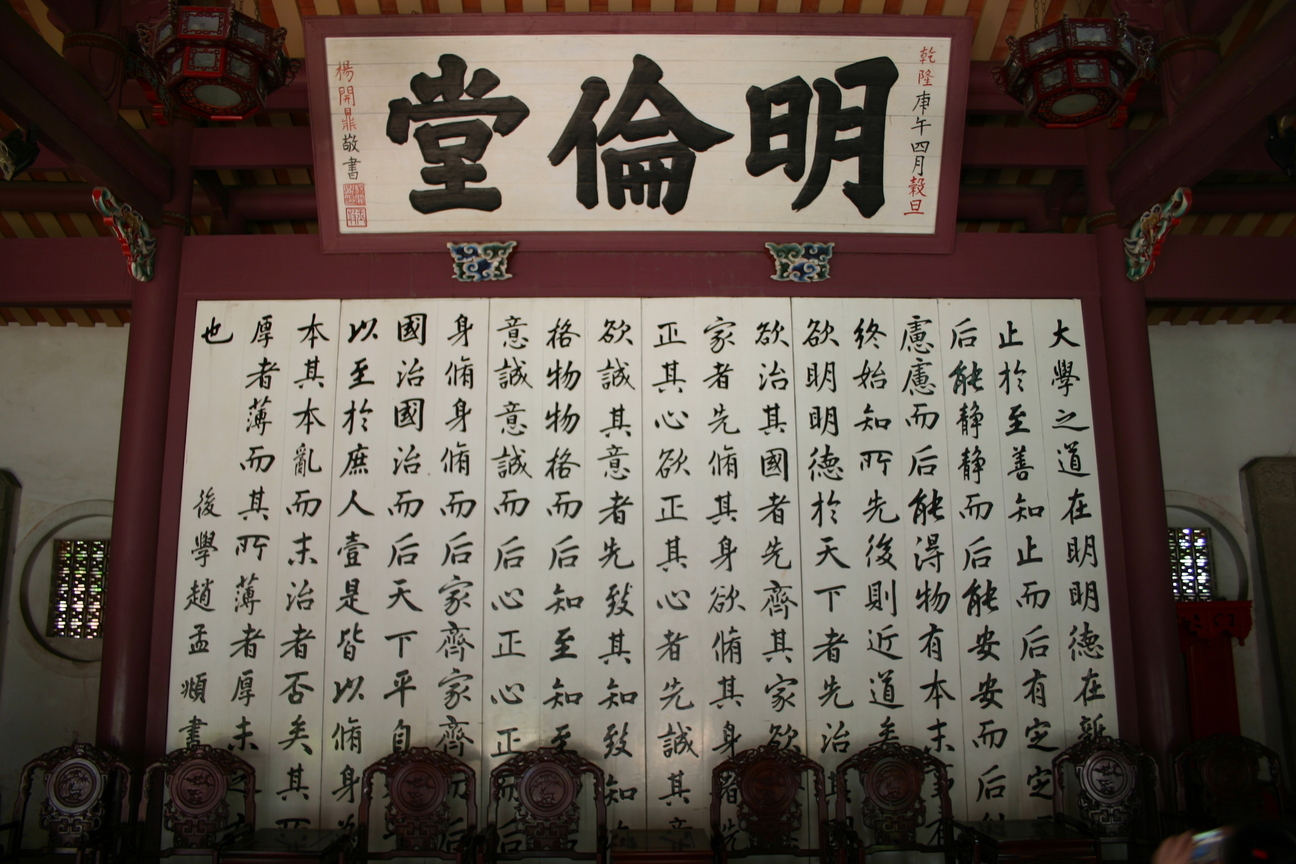 乾隆庚午四月穀旦
明倫堂
楊開鼎敬書
大學之道在明明德在
止於至善知止而后有定定
后能静静而后能安安而后
慮慮而后能得物有本末
終始知所先後則近道矣
欲明明德於天下者先治
欲治其國者先齊其家欲
家者先脩其身欲脩其身者先
正其心欲正其心者先誠其意
欲誠其意者先致其知致知
格物物格而后知至知至
意誠意誠而后心正心正而后
身脩身脩而后家齊家齊而后
國治國治而后天下平自
以至於庶人壹是皆以脩身
本其本亂而末治者否矣其所
厚者薄而其所薄者厚未之
也
後學趙孟頫書